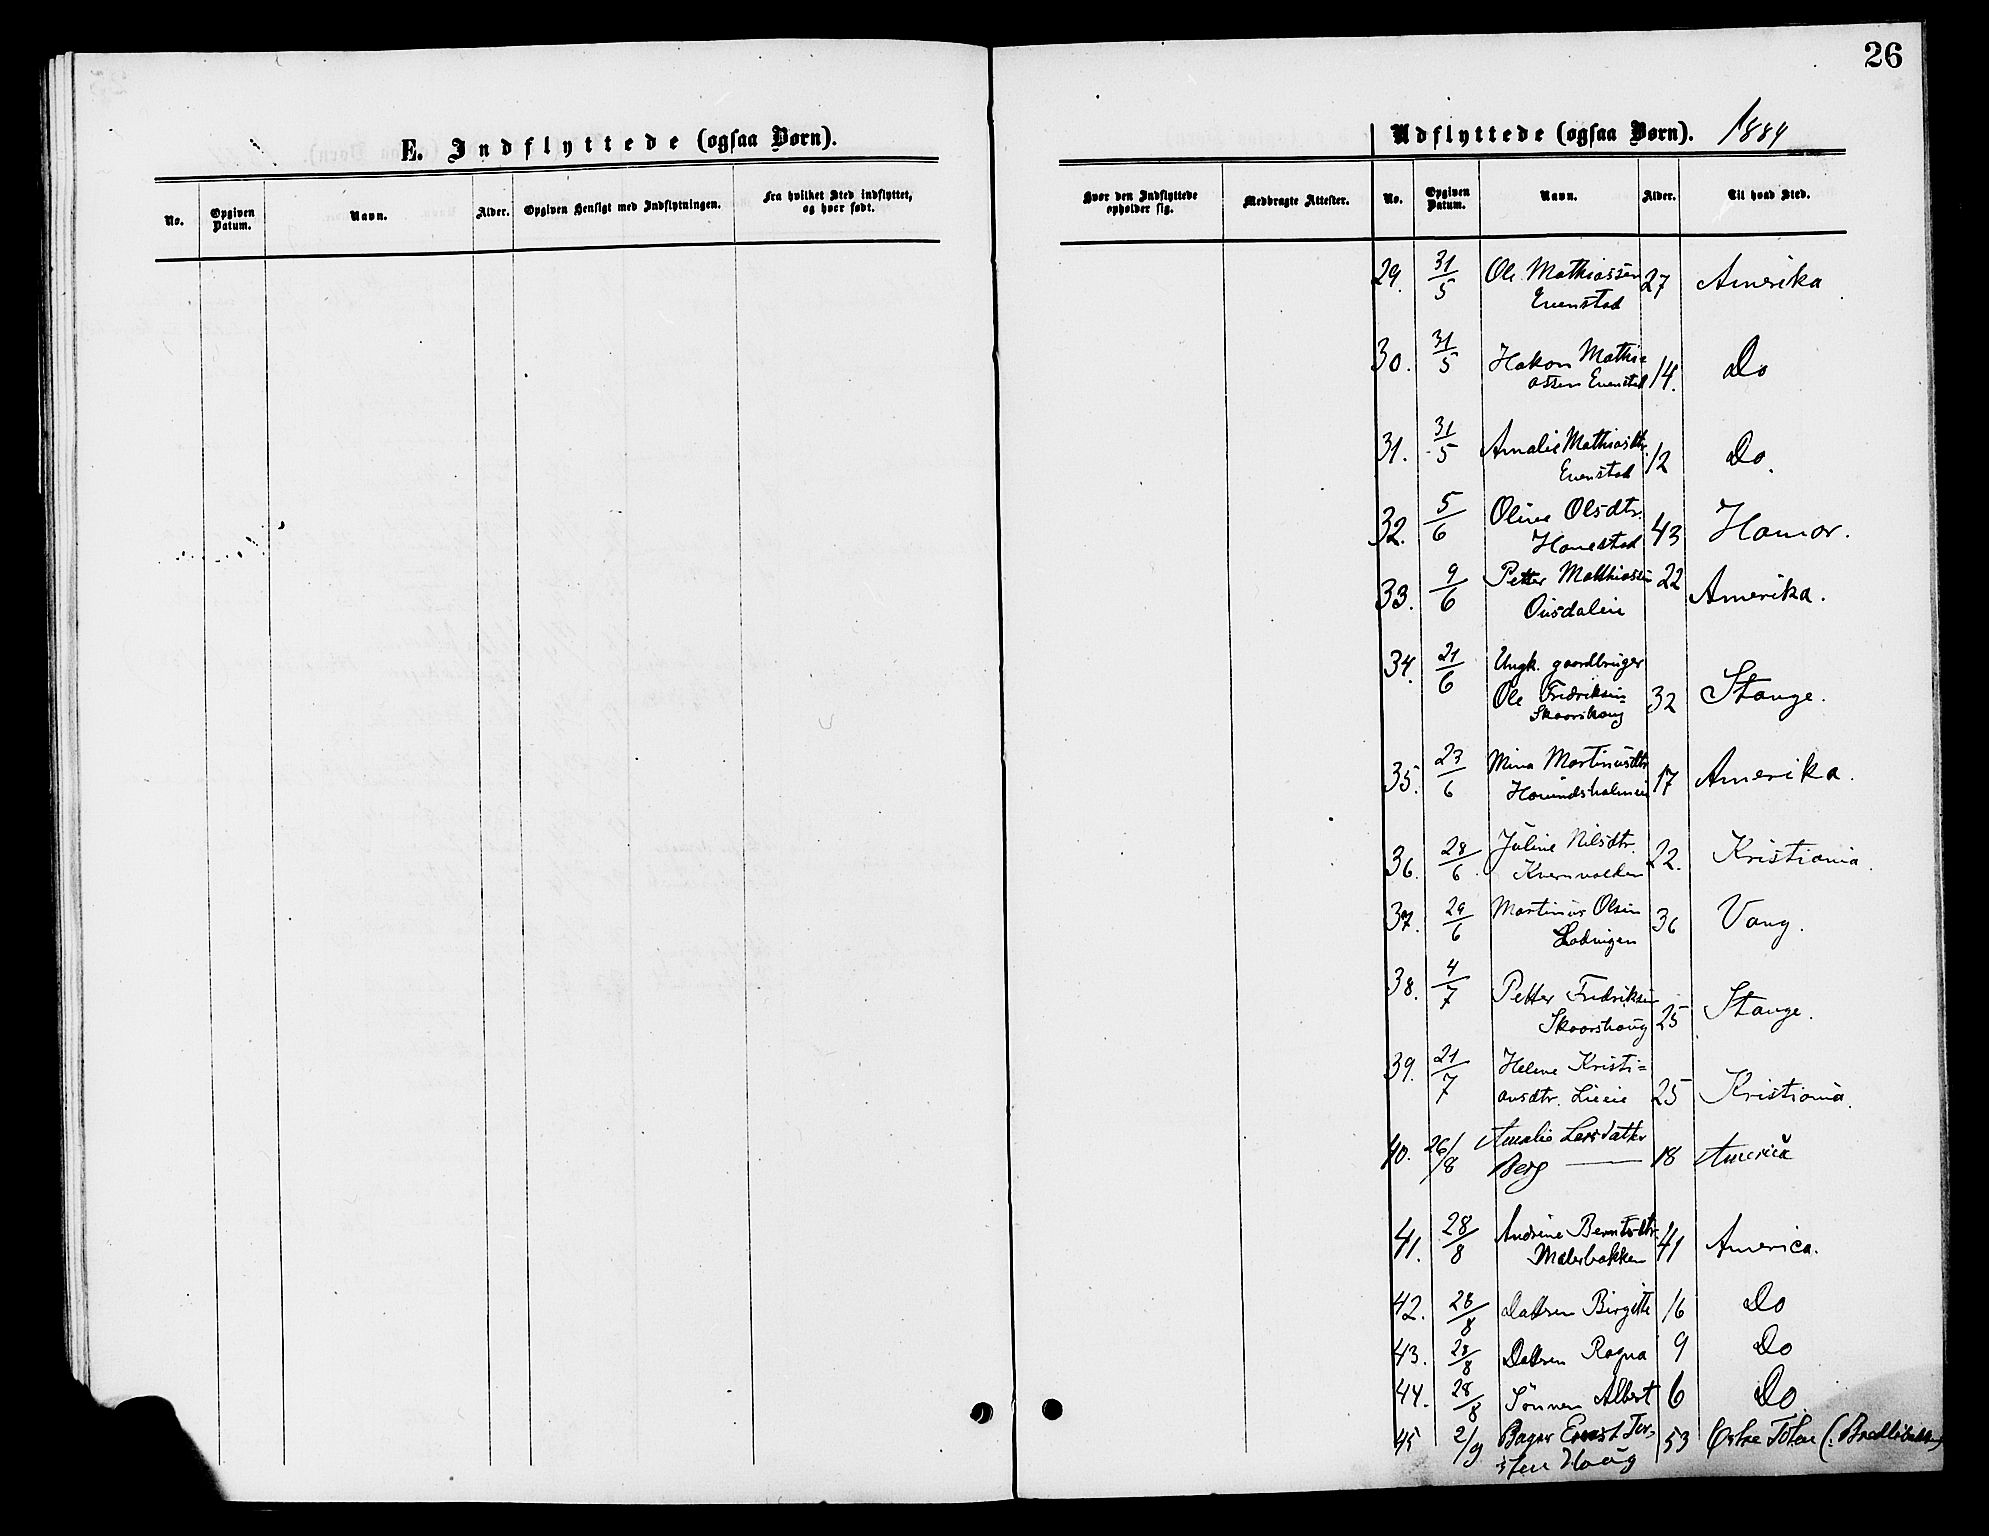 26
E. Indflyttede (ogsaa Børn).
No. Opgiven Datum. Navn. Alder. Opgiven Hensigt med Indflytningen. Fra hvilket Sted indflyttet, og hvor født.
Udflyttede (ogsaa Børn). 1884
Hvor den Indflyttede opholder sig. Medbragte Attester. No. Opgiven Datum. Navn. Alder. Til hvad Sted.
29. 31/5 Ole Mathiassen 27 Amerika
Evenstad
30. 31/5 Hakon Mathi-
assen Evenstad 14. Do
31. 31/5 Amalie Mathiasdtr. 12 Do.
Evenstad
32. 5/6 Oline Olsdtr. 43 Hamar.
Honestad
33. 9/6 Petter Mathiassen 22 Amerika.
34. 21/6 Ungk. gaardbruger
Ole Fredriksen 32 Stange.
Skaarshaug
35. 23/6 Mina Martinusdtr 17 Amerika.
36. 28/6 Juline Nilsdtr. 22. Kristiania.
37. 29/6 Martinus Olsen 36 Vang.
38. 4/7 Petter Fredriksen 25 Stange.
Skaarshaug
39. 21/7 Helene Kristi=
ansdtr. 25 Kristiania.
40. 26/8 Amalie Larsdatter
Berg — 18 America
41. 28/8 Andrine Berntsdtr. 41 America.
Malerbakken
42. 28/8 Datren Birgitte 16 Do
43. 28/8 Datren Ragna 9 Do
44. 28/8 Sønnen Albert 6 Do.
45 2/9 Bager Ernst Tor-
sten Haug 53 Østre Toten